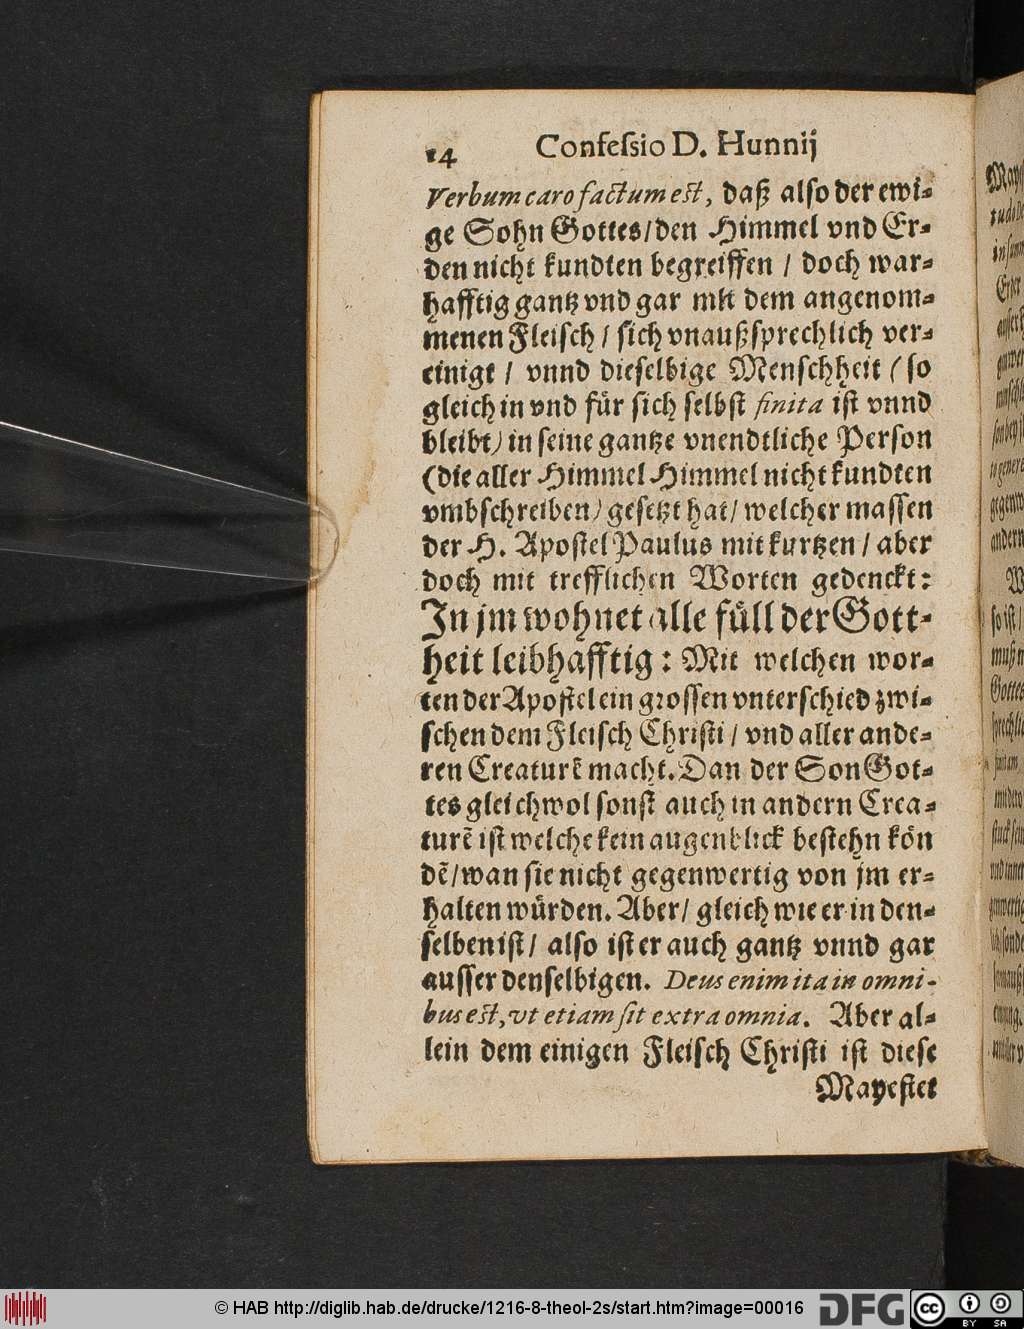 14 Confeſsio D. Hunnij
Verbum caro factum est, daß also der ewi-
ge Sohn Gottes/den Himmel vnd Er-
den nicht kundten begreiffen / doch war-
hafftig gantz vnd gar mit dem angenom-
menen Fleisch / sich vnaußsprechlich ver-
einigt / vnnd dieselbige Menschheit (so
gleich in vnd für sich selbst finita ist vnnd
bleibt) in seine gantze vnendtliche Person
(die aller Himmel Himmel nicht kundten
vmbschreiben) gesetzt hat/ welcher massen
der H. Apostel Paulus mit kurtzen / aber
doch mit trefflichen Worten gedenckt:
In jm wohnet alle füll der Gott-
heit leibhafftig: Mit welchen wor-
ten der Apostel ein grossen vnterschied zwi-
schen dem Fleisch Christi / vnd aller ande-
ren Creaturē macht. Dan der Son Got-
tes gleichwol sonst auch in andern Crea-
turē ist welche kein augenblick bestehn kön
dē/wan sie nicht gegenwertig von jm er-
halten würden. Aber/ gleich wie er in den-
selben ist/ also ist er auch gantz vnnd gar
ausser denselbigen. Deus enim ita in omni-
bus est, vt etiam sit extra omnia. Aber al-
lein dem einigen Fleisch Christi ist diese
Mayestet
© HAB http://diglib.hab.de/drucke/1216-8-theol-2s/start.htm?image=00016 DFG cc BY SA